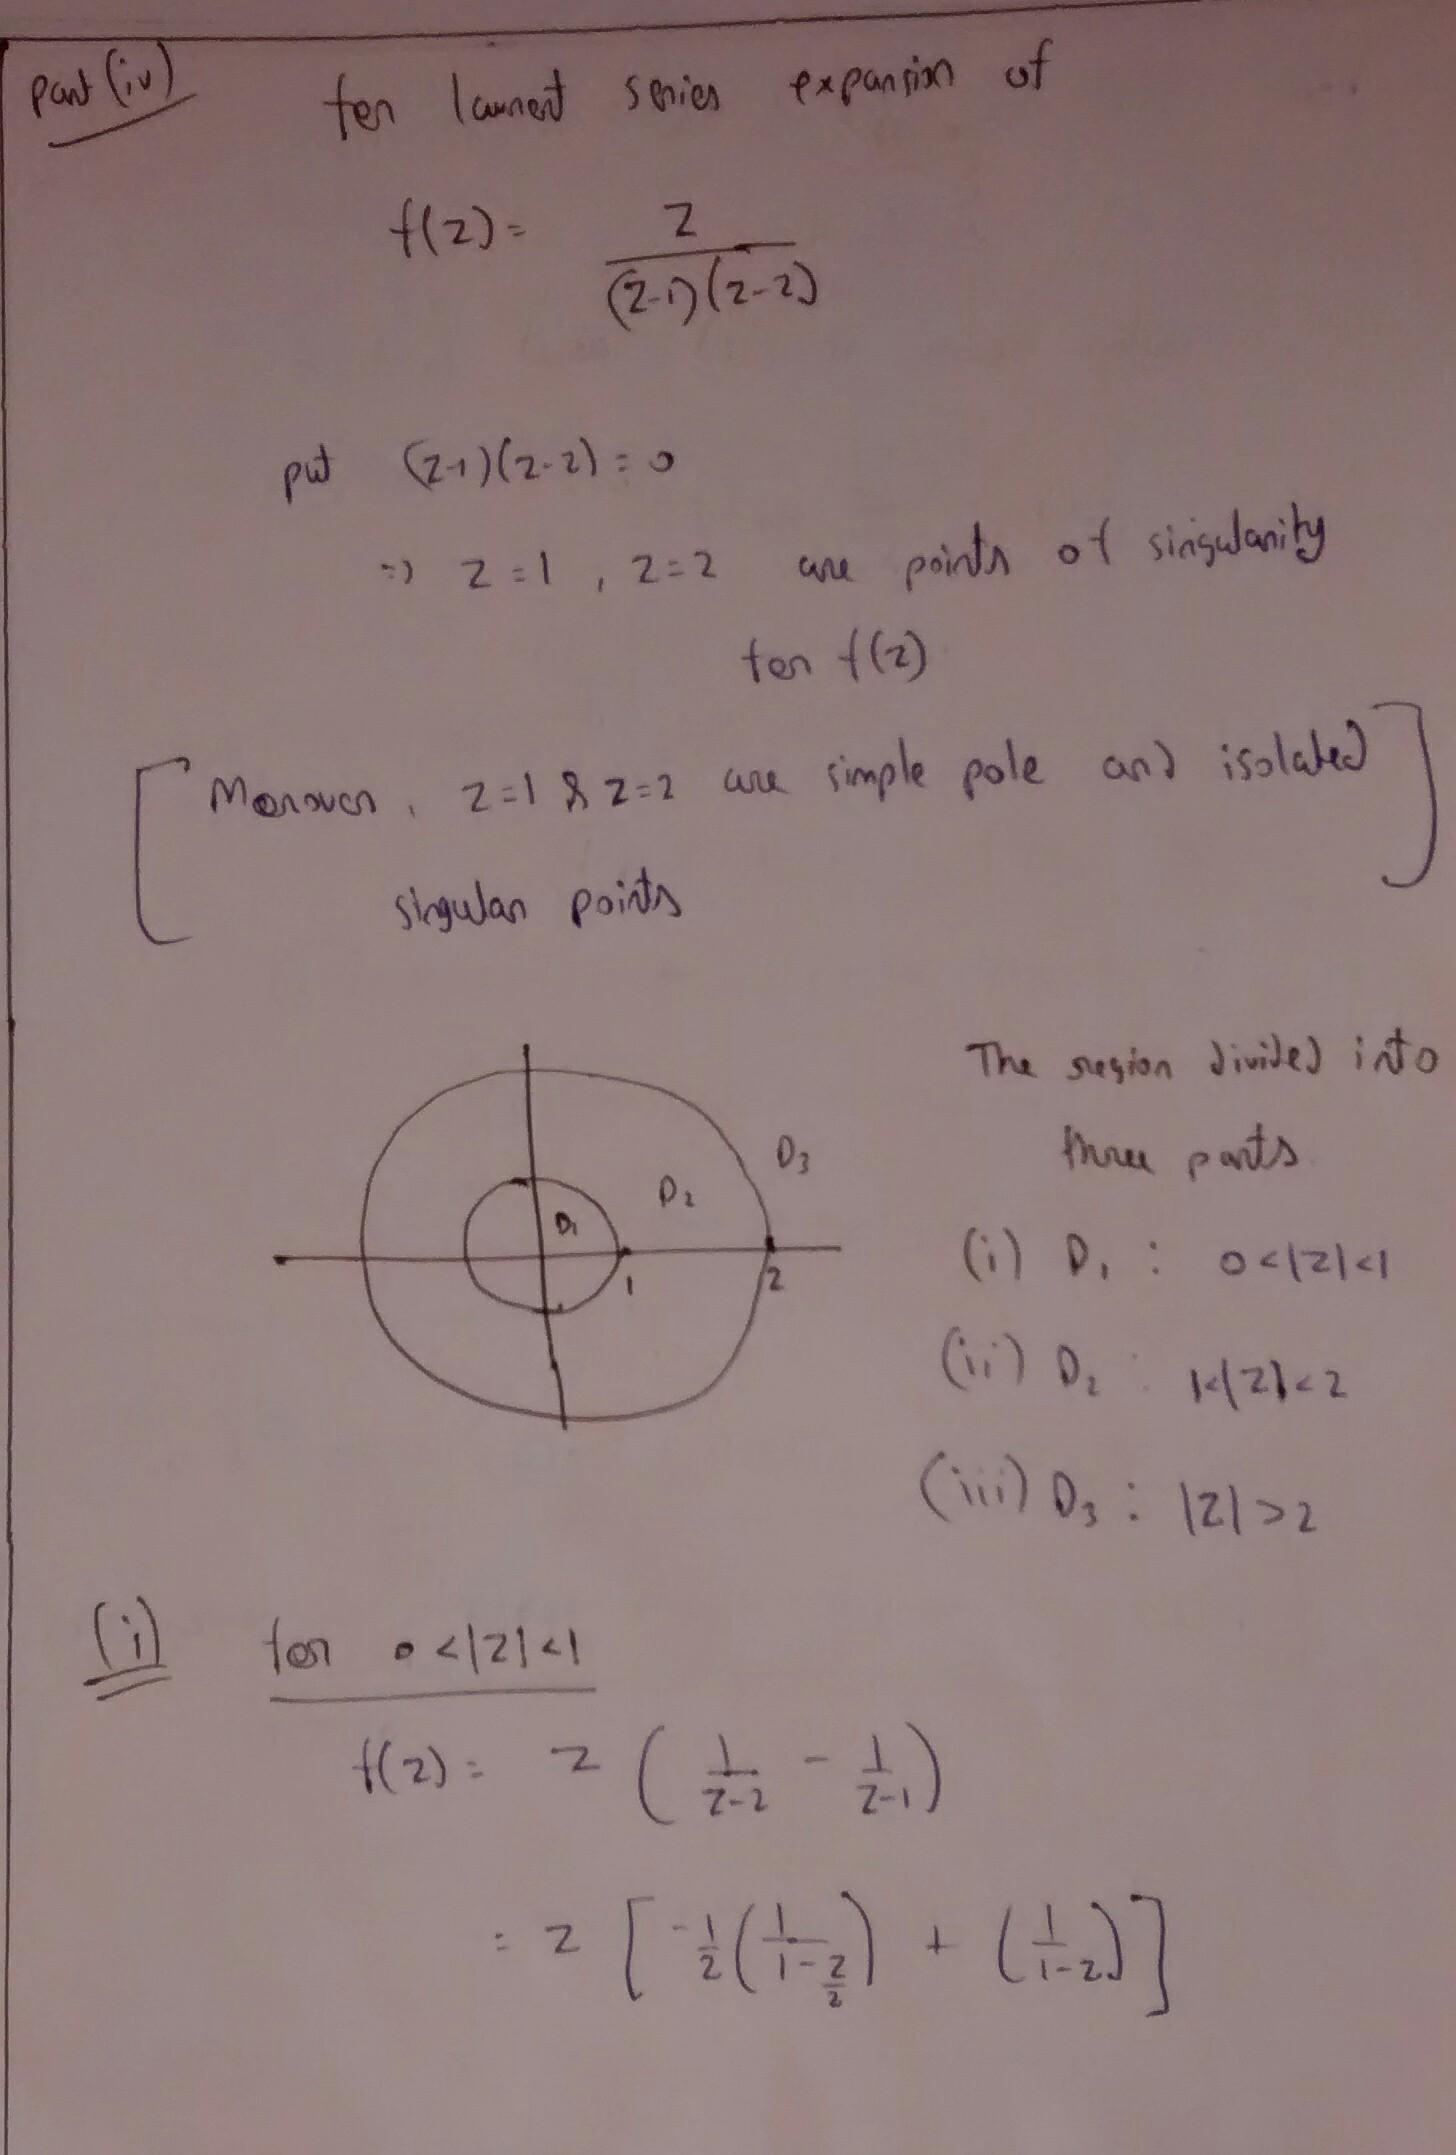 part (iv) for laurent series expansion of
f(z) = z / (z-1)(z-2)
put (z-1)(z-2) = 0
=> z = 1 , z = 2 are points of singularity
for f(z)
[ Moreover , z=1 & z=2 are simple pole and isolated
singular points ]
The region divided into
three parts
D3
D2
D1
1
2
(i) D1 : 0<|z|<1
(ii) D2 : 1<|z|<2
(iii) D3 : |z|>2
(i) for 0<|z|<1
f(z) = z ( 1/(z-2) - 1/(z-1) )
= z [ -1/2 ( 1/(1-z/2) ) + ( 1/(1-z) ) ]